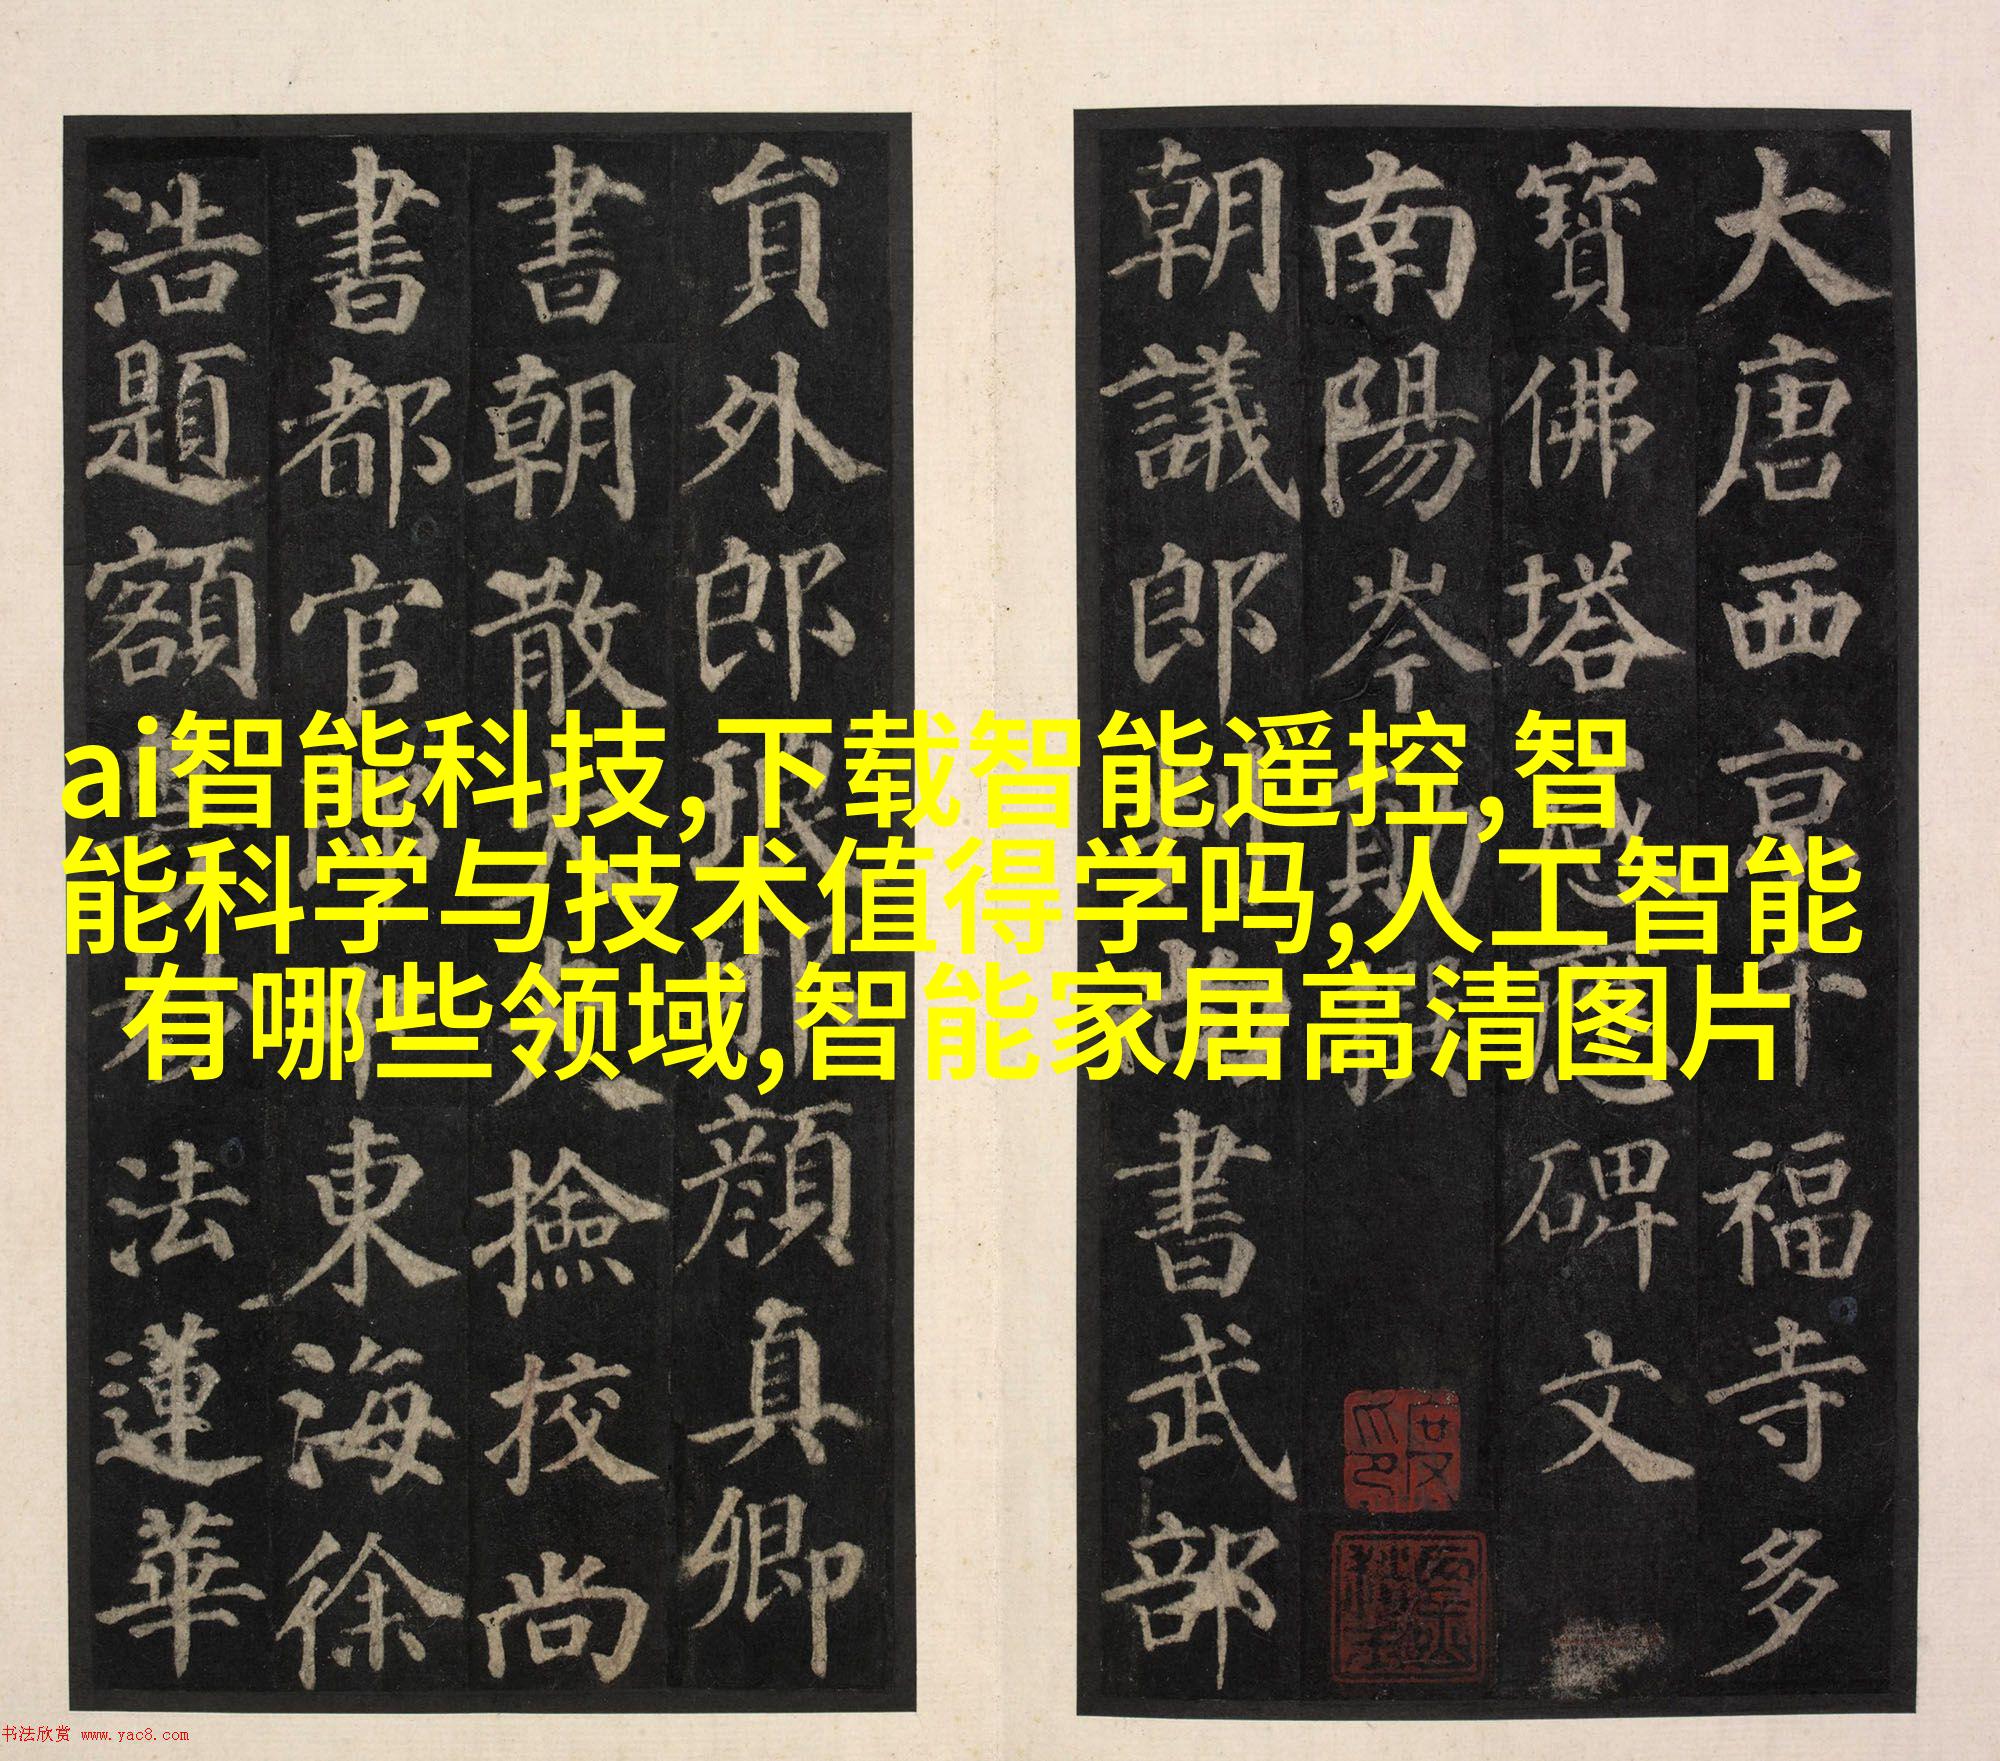 大唐西亰千福寺多
寶佛塔感應碑文
南陽岑勛撰
朝議郎判尚書武部
貟外郎琅邪顏真卿
書朝散大夫撿校尚
書都官郎中東海徐
浩題額粤妙法蓮華
ai智能科技,下载智能遥控,智
能科学与技术值得学吗,人工智能
有哪些领域,智能家居高清图片
书法欣赏 www.yac8.com